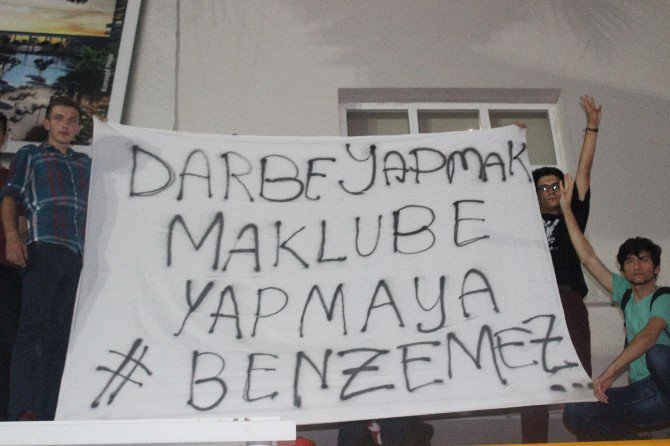 DARBE YAPMAK
MAKLUBE
YAPMAYA
#BENZEMEZ...